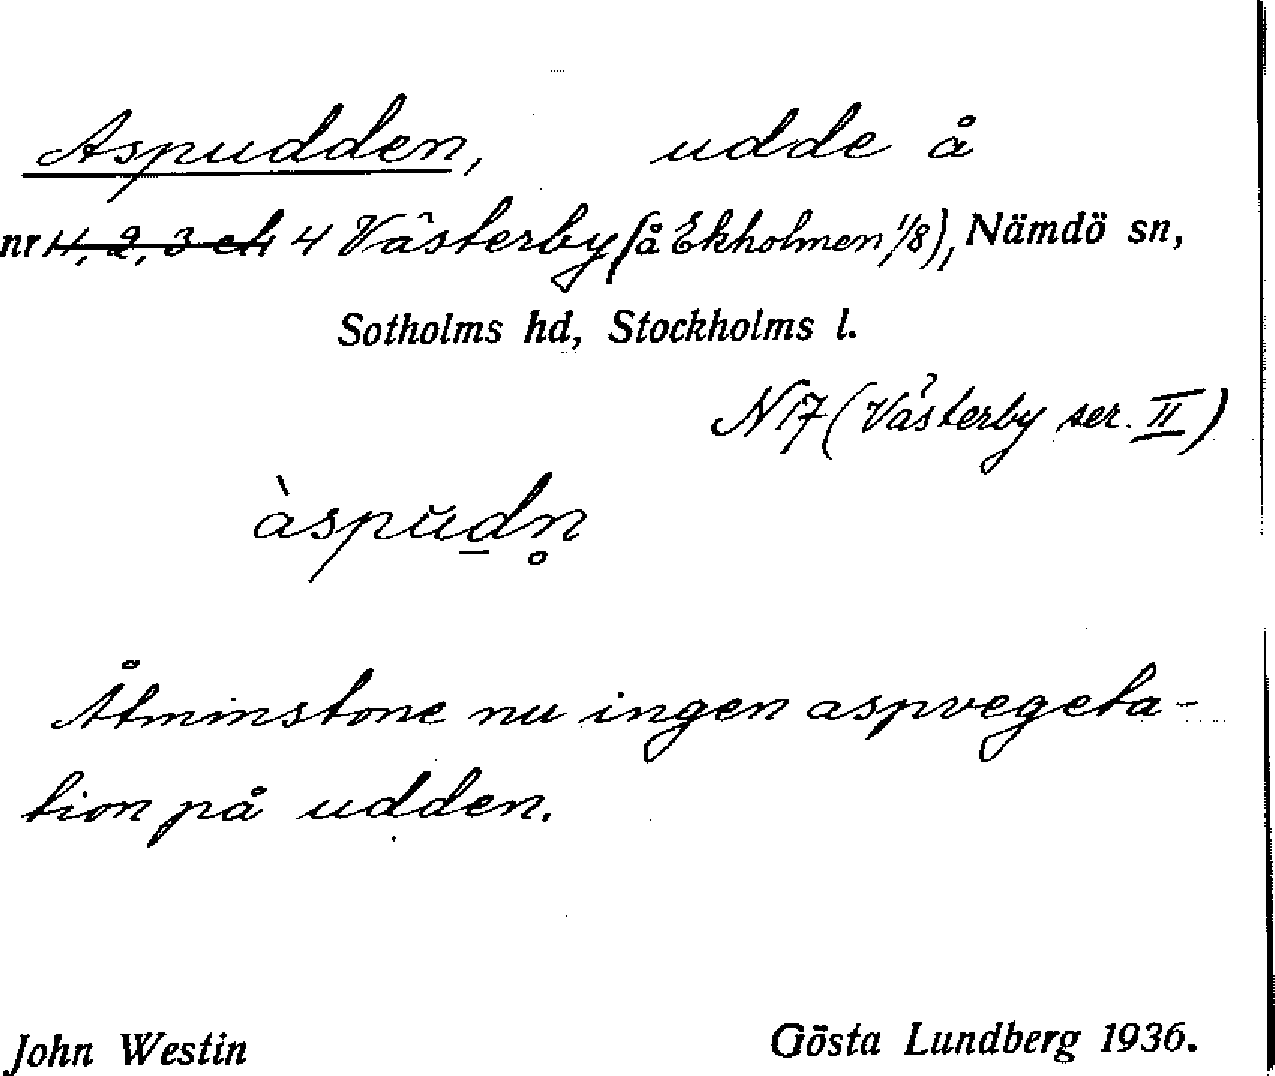 Aspudden, udde å
nr 1, 2, 3 och 4 Västerby (å Ekholmen 1/8), Nämdö sn,
Sotholms hd, Stockholms l.
N 17 (Västerby ser. II)
àspŭd̲n̥
Åtminstone nu ingen aspvegeta-
tion på udden.
John Westin Gösta Lundberg 1936.